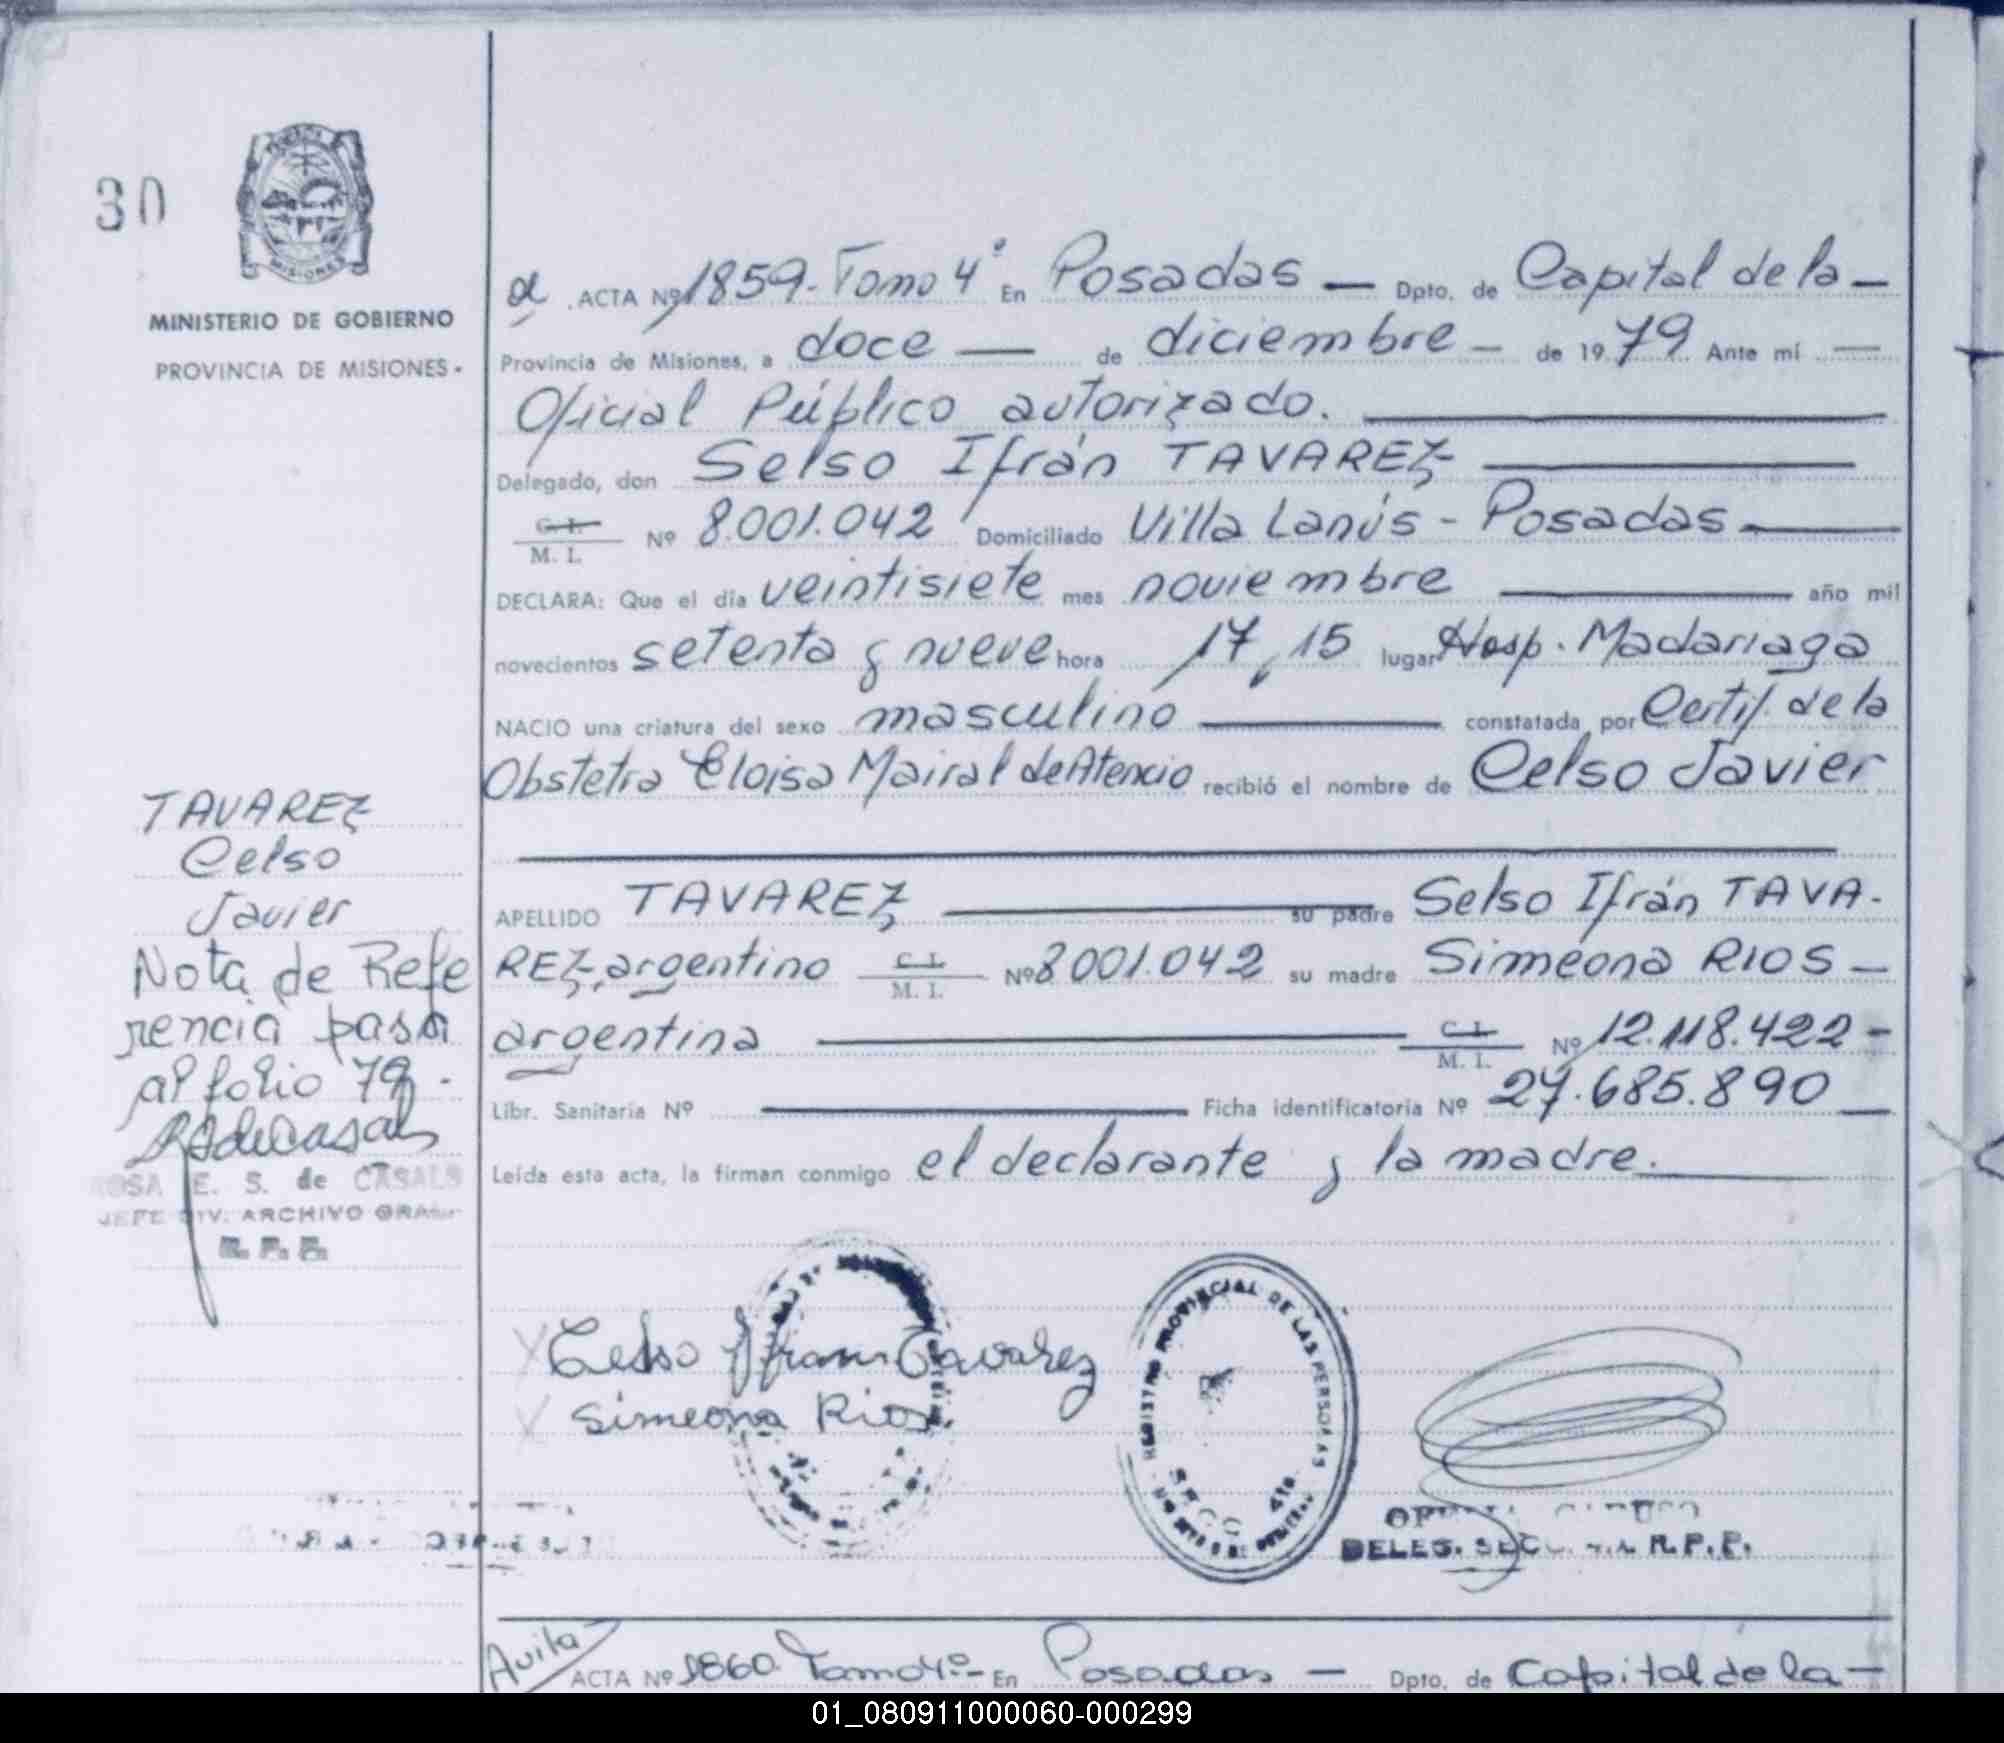 30
MISIONES
MINISTERIO DE GOBIERNO
PROVINCIA DE MISIONES.
ACTA Nº 1859. Tomo 4º En Posadas — Dpto. de Capital de la —
Provincia de Misiones, a doce — de diciembre — de 1979 Ante mí —
Oficial Público autorizado.
Delegado, don Selso Ifrán TAVAREZ
C. I.
M. I. Nº 8.001.042 Domiciliado Villa Lanús - Posadas
DECLARA: Que el día veintisiete mes noviembre año mil
novecientos setenta y nueve hora 17,15 lugar Hosp. Madariaga
NACIO una criatura del sexo masculino constatada por Certif. de la
Obstetra Eloisa Mairal de Atencio recibió el nombre de Celso Javier
APELLIDO TAVAREZ su padre Selso Ifrán TAVA-
REZ, argentino C. I. M. I. Nº 8.001.042 su madre Simeona RIOS —
argentina C. I. M. I. Nº 12.118.422 -
Libr. Sanitaria Nº — Ficha identificatoria Nº 27.685.890
Leída esta acta, la firman conmigo el declarante y la madre.
TAVAREZ
Celso
Javier
Nota de Refe
rencia pasa
al folio 79.
ROSA E. S. de CASALS
JEFE DIV. ARCHIVO GRAL.
R. P. P.
Celso Ifran Tavarez
Simeona Rios
REGISTRO PROVINCIAL DE LAS PERSONAS
DELES. SECC. R.P.P.
Avila
ACTA Nº 1860. Tomo 4º.- En Posadas — Dpto. de Capital de la —
01_080911000060-000299